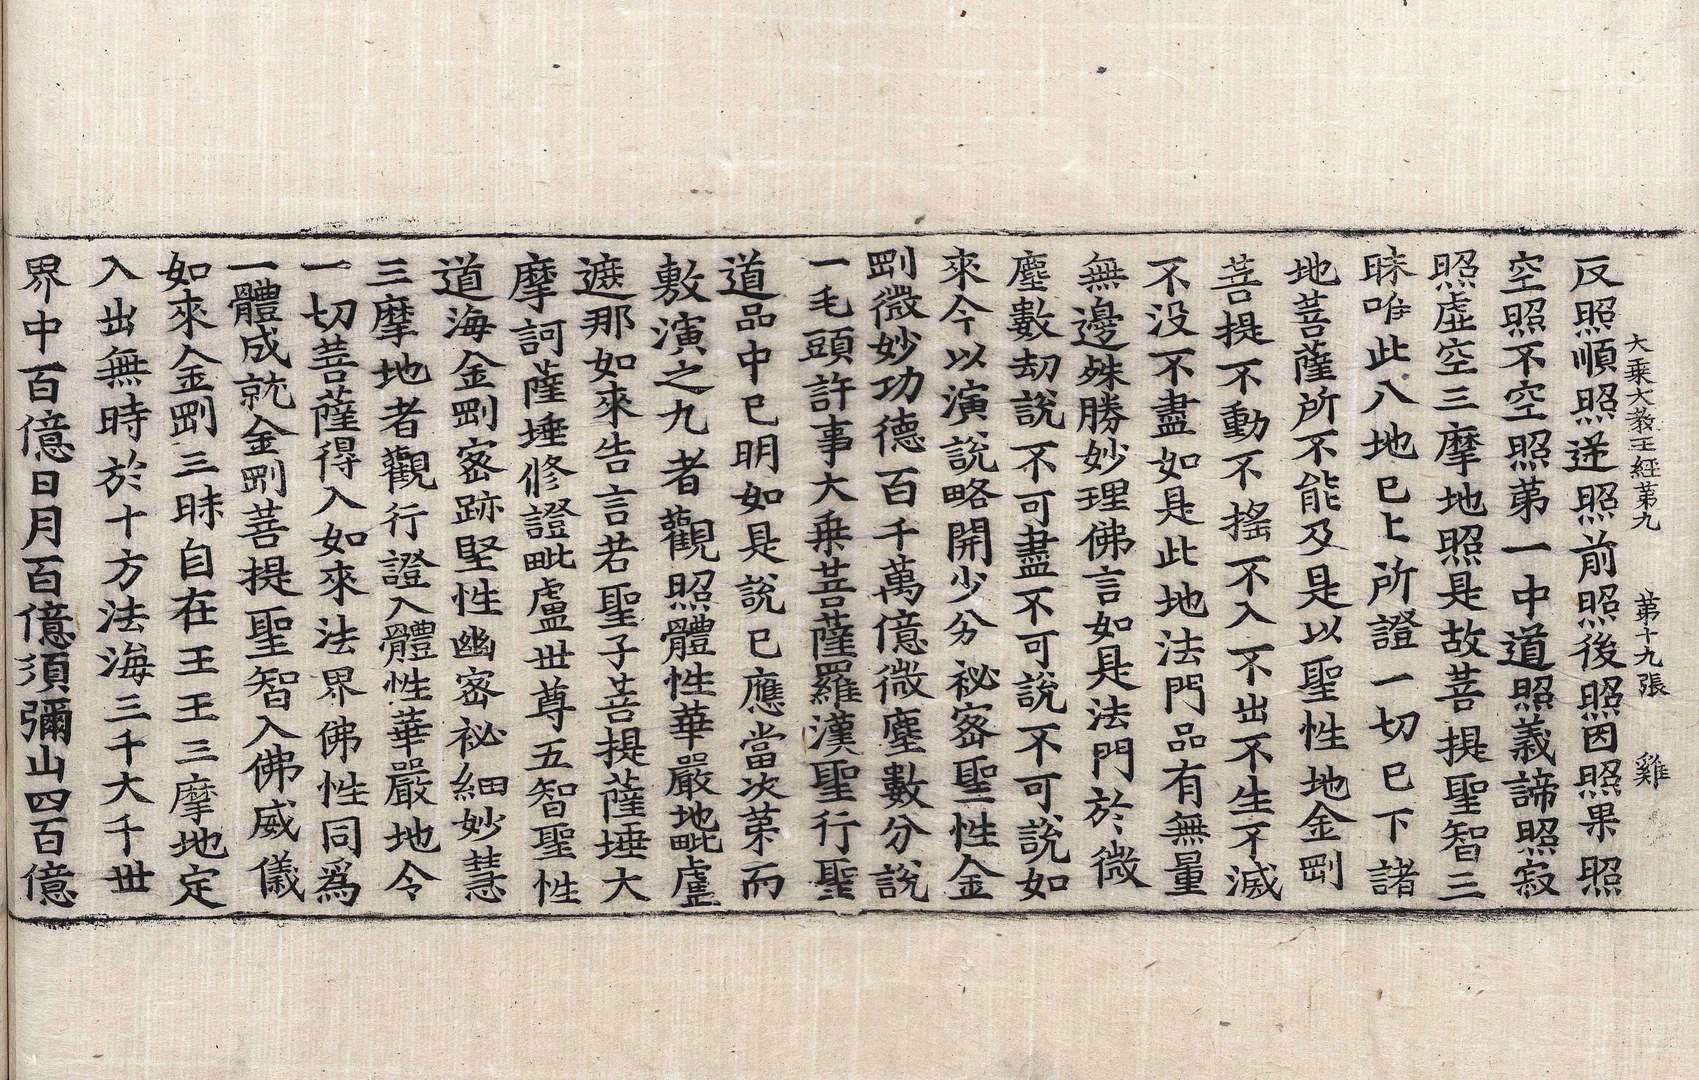 大乘大教王經第九 第十九張 雞
反照順照逆照前照後照因照果照
空照不空照第一中道照義諦照寂
照虛空三摩地照是故菩提聖智三
昧唯此八地已上所證一切已下諸
地菩薩所不能及是以聖性地金剛
菩提不動不搖不入不出不生不滅
不没不盡如是此地法門品有無量
無邊殊勝妙理佛言如是法門於微
塵數劫說不可盡不可說不可說如
來今以演說略開少分祕密聖性金
剛微妙功德百千萬億微塵數分說
一毛頭許事大乘菩薩羅漢聖行聖
道品中已明如是說已應當次第而
敷演之九者觀照體性華嚴地毗盧
遮那如來告言若聖子菩提薩埵大
摩訶薩埵修證毗盧世尊五智聖性
道海金剛密跡堅性幽密祕細妙慧
三摩地者觀行證入體性華嚴地令
一切菩薩得入如來法界佛性同爲
一體成就金剛菩提聖智入佛威儀
如來金剛三昧自在王王三摩地定
入出無時於十方法海三千大千世
界中百億日月百億須彌山四百億